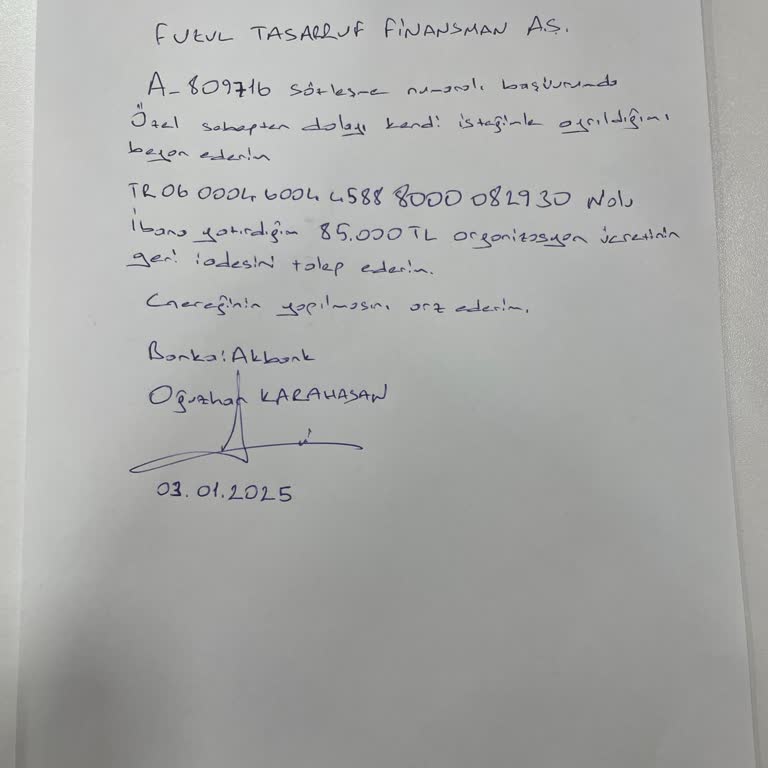 FUZUL TASARRUF FİNANSMAN A.Ş.
A-809716 sözleşme numaralı başvurumda
Özel sebepten dolayı kendi isteğimle ayrıldığımı
beyan ederim
TR06 0004 6004 4588 8000 082930 Nolu
İbana yatırdığım 85.000 TL organizasyon ücretinin
geri iadesini talep ederim.
Gereğinin yapılmasını arz ederim.
Banka: Akbank
Oğuzhan KARAHASAN
03.01.2025